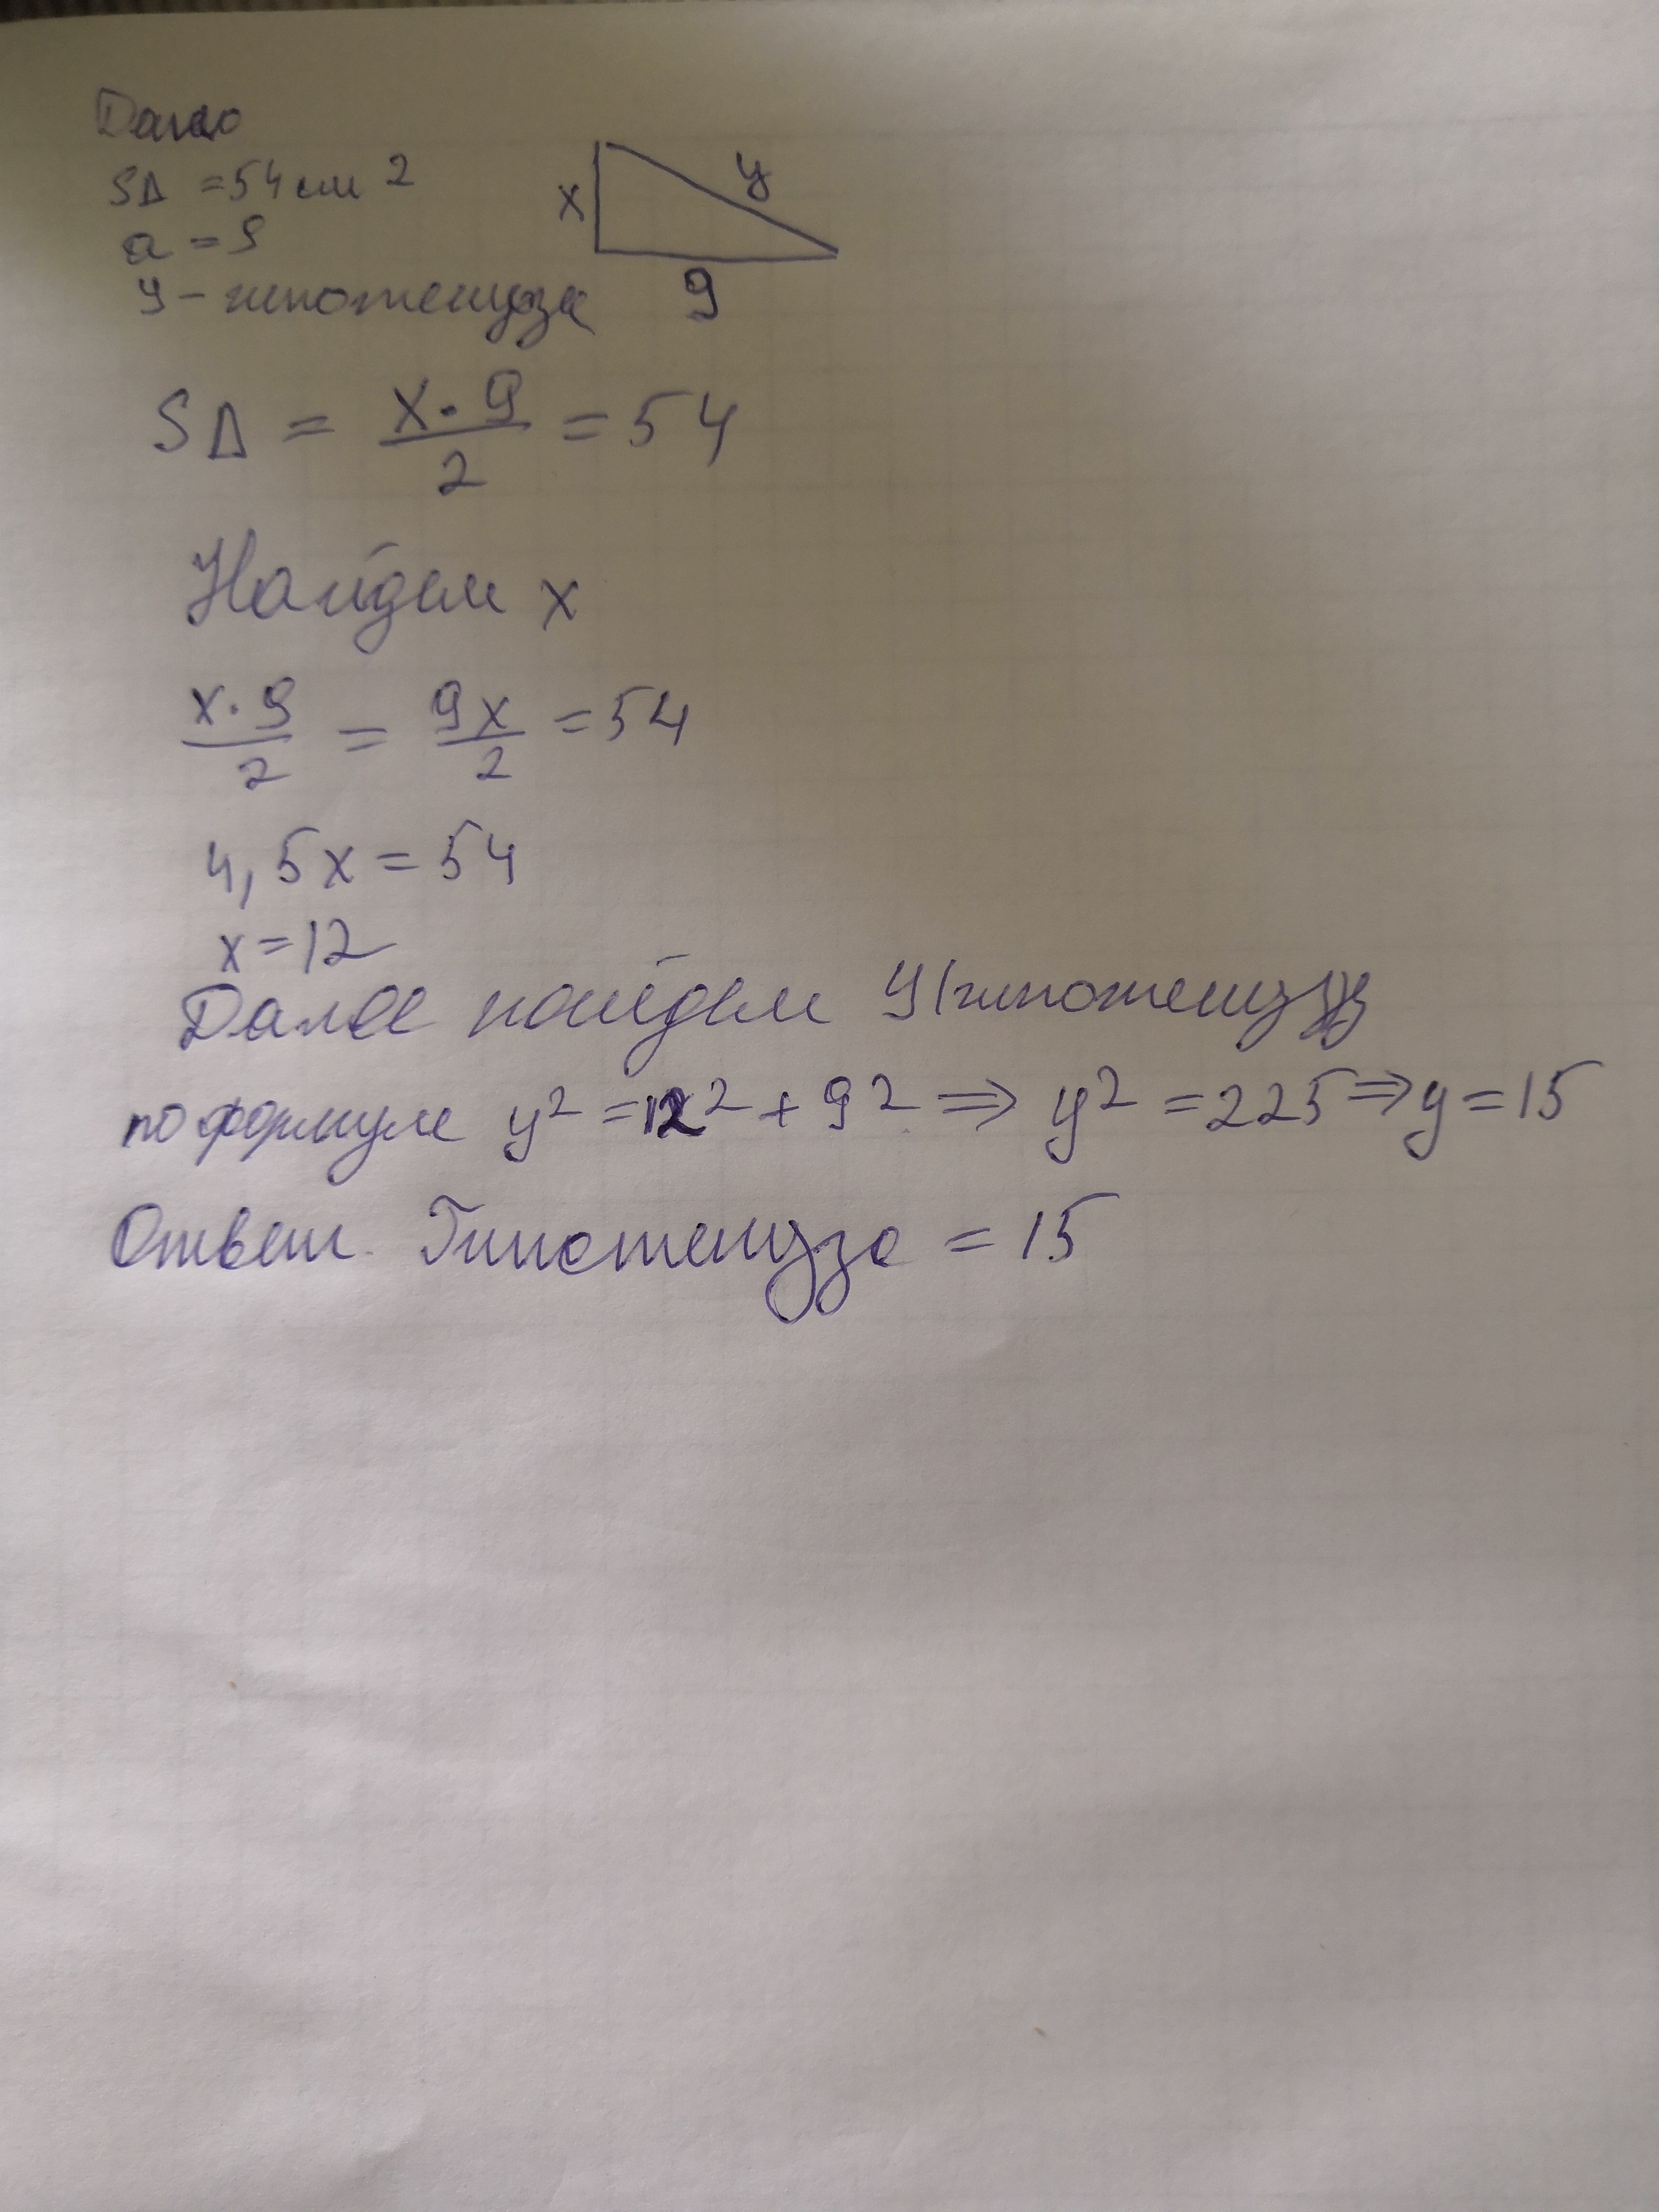 Дано
S∆ = 54 см 2
a = 9
y - гипотенуза
x
y
9
S∆ = x·9/2 = 54
Найдем x
x·9/2 = 9x/2 = 54
4,5x = 54
x = 12
Далее найдем y (гипотенузу
по формуле y² = 12² + 9² ⇒ y² = 225 ⇒ y = 15
Ответ. Гипотенуза = 15